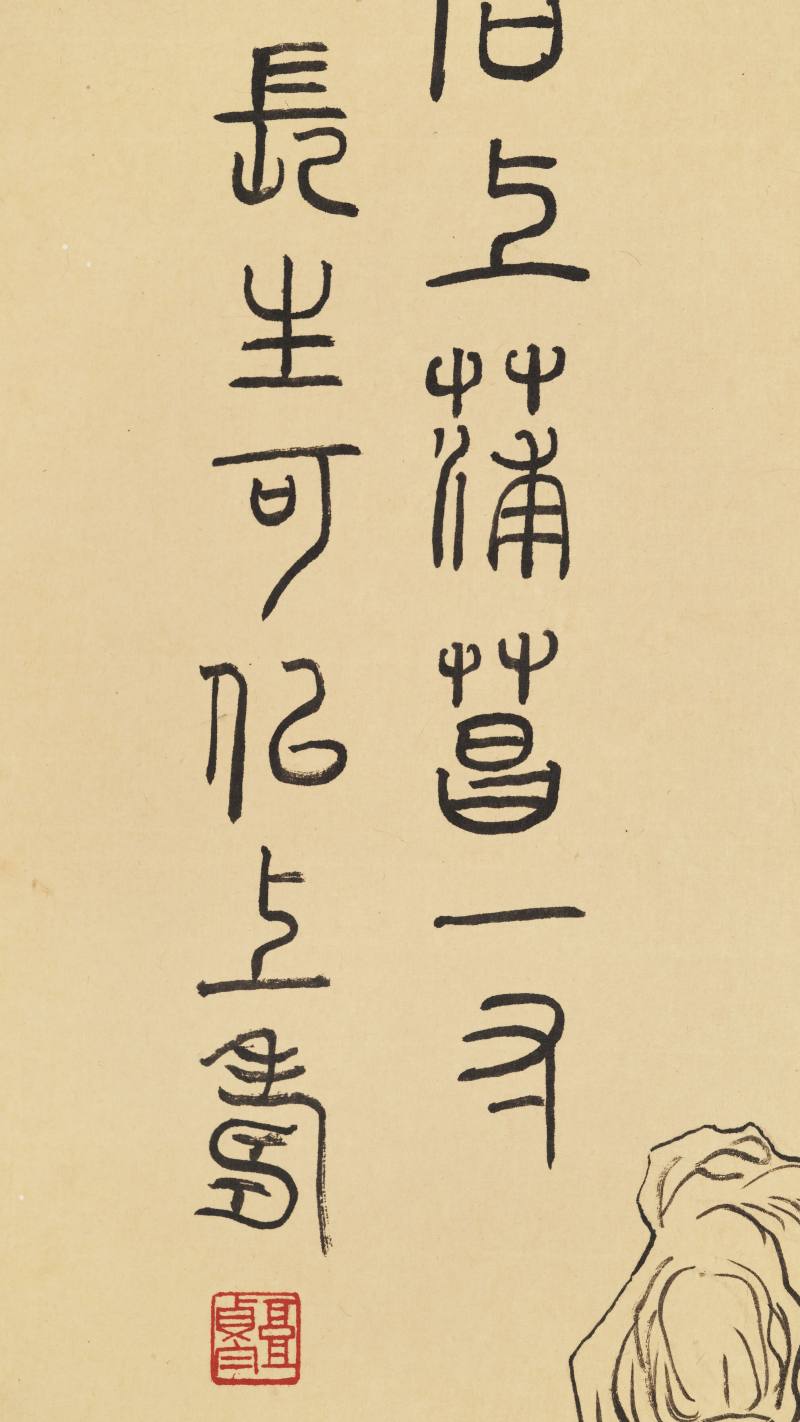 石上蒲菖一寸
長生可以上壽